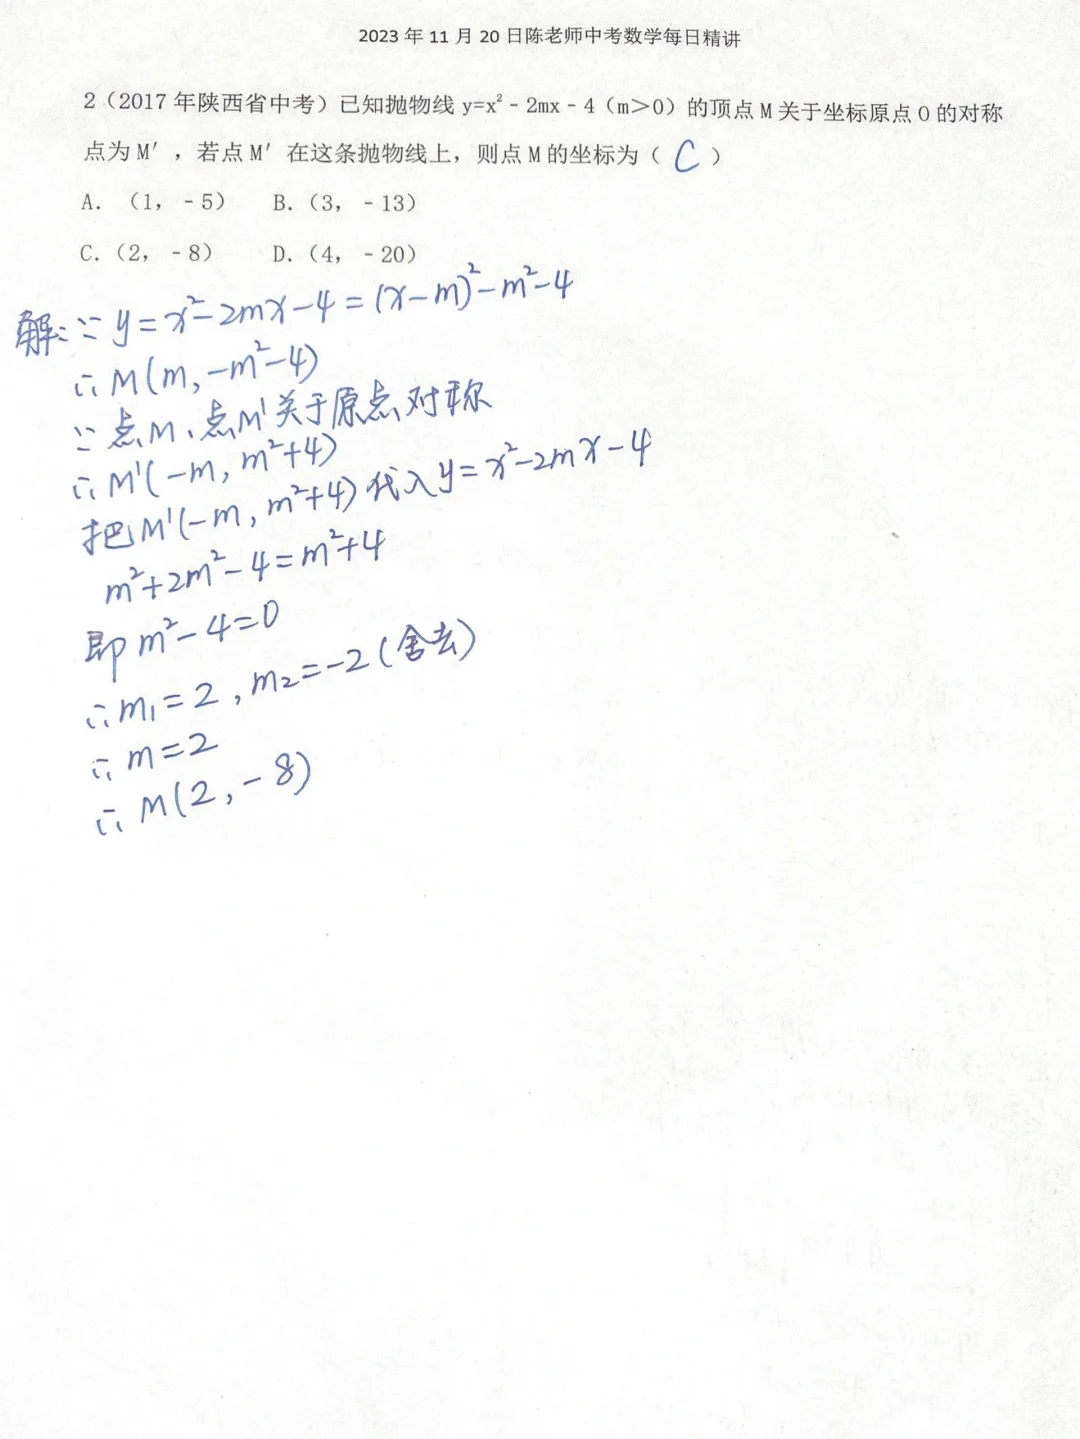 2023 年 11 月 20 日陈老师中考数学每日精讲
2（2017 年陕西省中考）已知抛物线 y=x²﹣2mx﹣4（m＞0）的顶点 M 关于坐标原点 O 的对称
点为 M′，若点 M′在这条抛物线上，则点 M 的坐标为（ C ）
A. （1，﹣5） B.（3，﹣13）
C.（2，﹣8） D.（4，﹣20）
解:∵ y=x²-2mx-4=(x-m)²-m²-4
∴ M(m,-m²-4)
∵ 点M、点M'关于原点对称
∴ M'(-m, m²+4)
把M'(-m, m²+4)代入y=x²-2mx-4
m²+2m²-4=m²+4
即 m²-4=0
∴ m₁=2, m₂=-2(舍去)
∴ m=2
∴ M(2,-8)